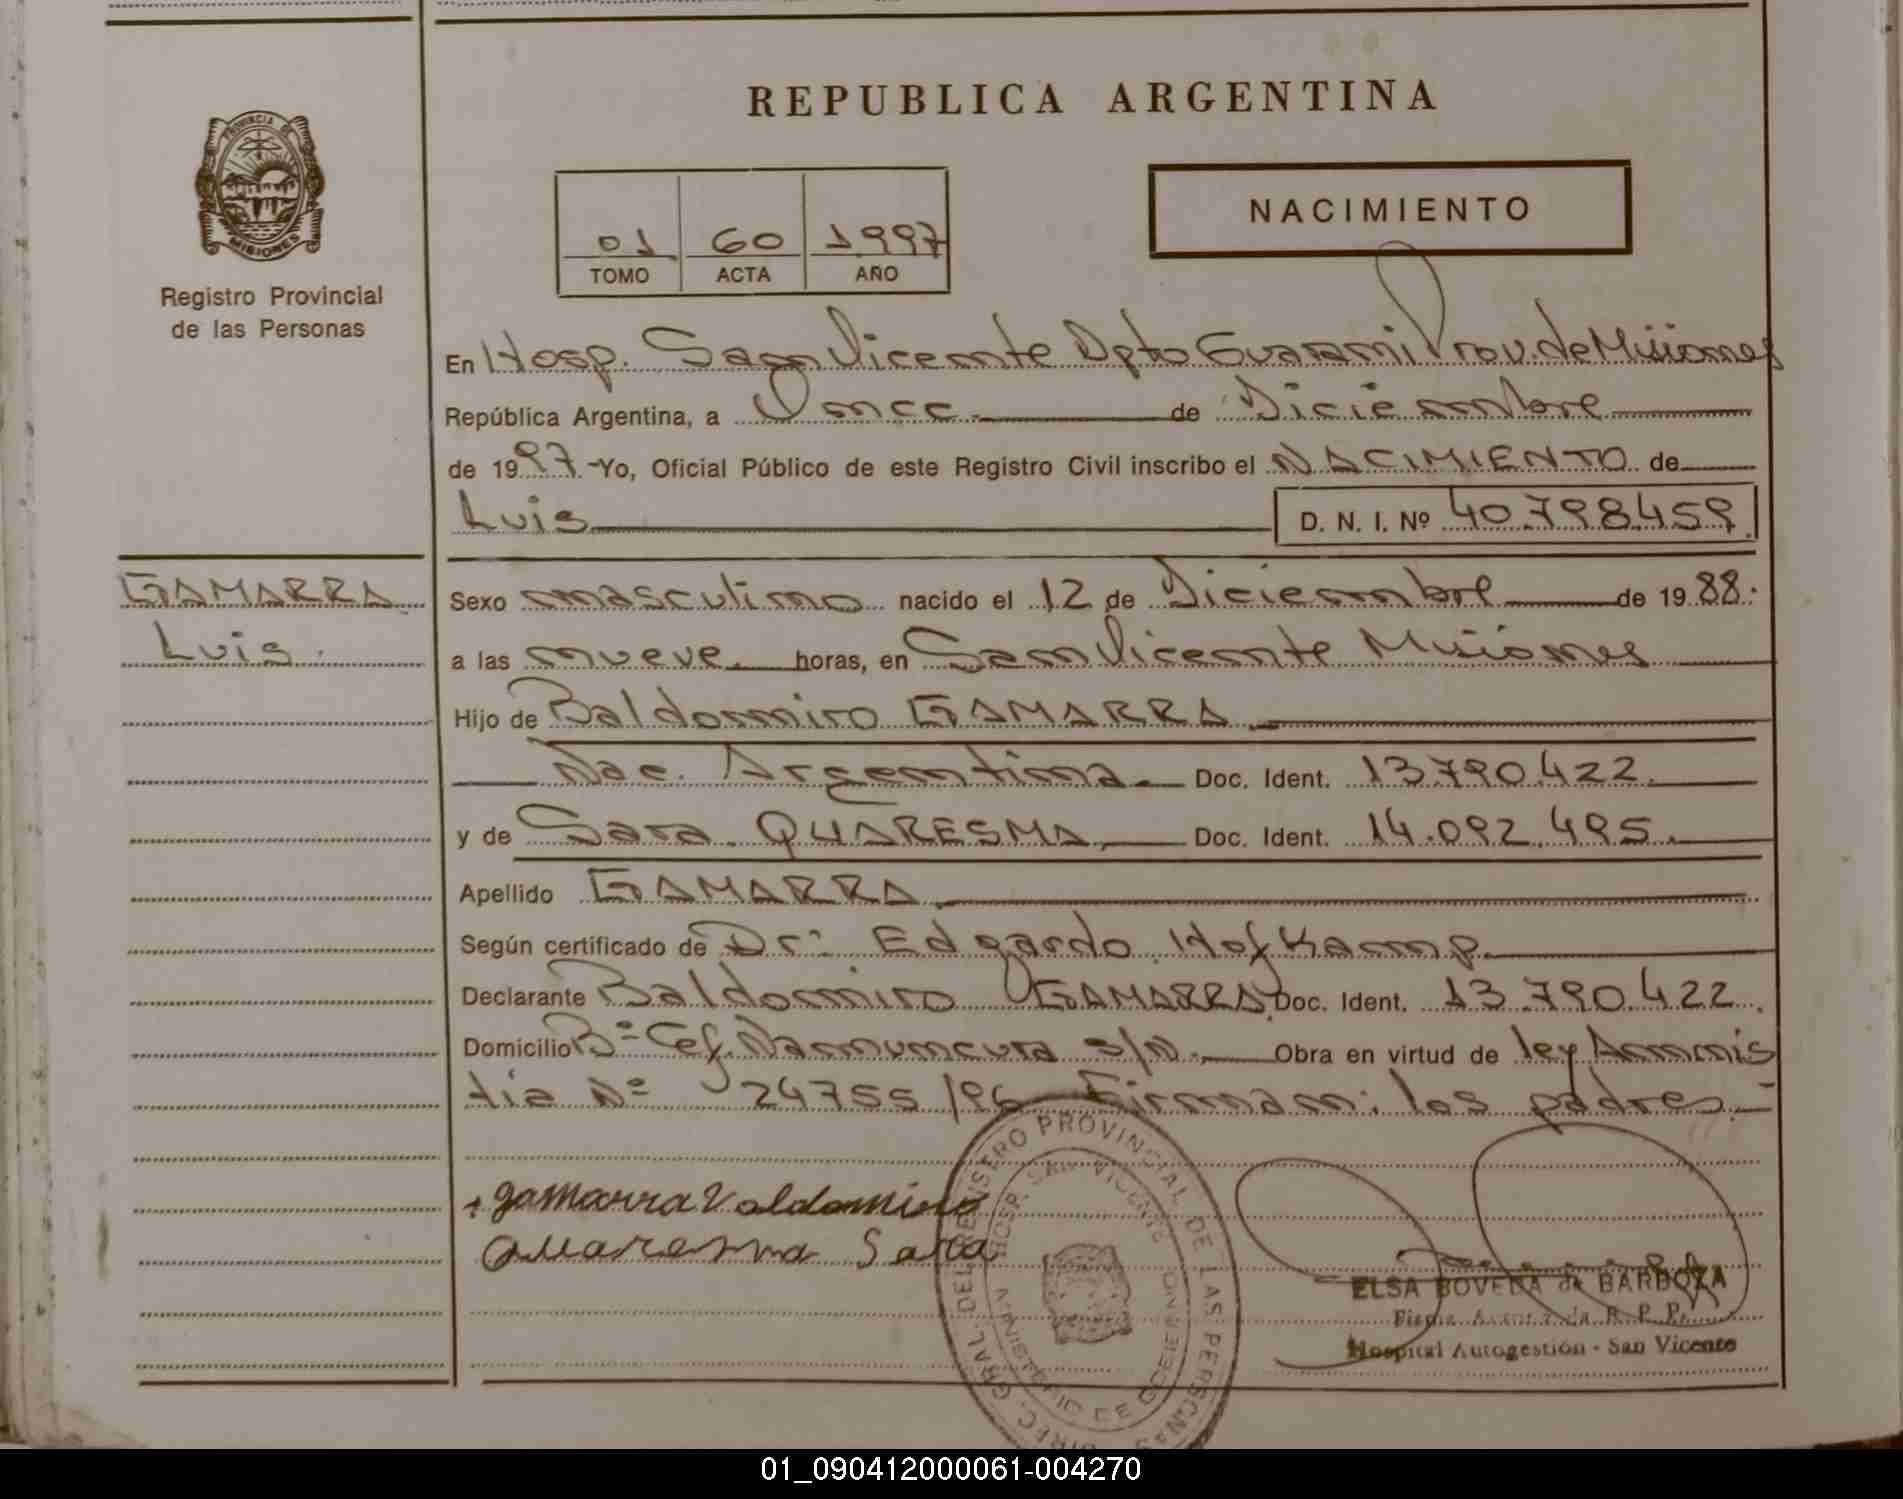 REPUBLICA ARGENTINA
PROVINCIA DE
MISIONES
Registro Provincial
de las Personas
NACIMIENTO
01 60 1997
TOMO ACTA AÑO
En Hosp. San Vicente Dpto Guarani Prov. de Misiones
República Argentina, a Once de Diciembre
de 1997.-Yo, Oficial Público de este Registro Civil inscribo el NACIMIENTO de
Luis D. N. I. Nº 40.798.459
GAMARRA
Luis.
Sexo masculino nacido el 12 de Diciembre de 1988.
a las nueve horas, en San Vicente Misiones
Hijo de Baldomiro GAMARRA.
Nac. Argentina. Doc. Ident. 13.790.422.
y de Sara QUARESMA Doc. Ident. 14.092.495.
Apellido GAMARRA
Según certificado de Dr: Edgardo Hofkamp.
Declarante Baldomiro GAMARRA Doc. Ident. 13.790.422.
Domicilio Bº Cef. Namuncura s/N. Obra en virtud de ley Amnis
tia Nº 24755/96 Firman: los padres.-
Gamarra Valdomiro
Quaresma Sara
PROVINCIAL DE LAS PERSONAS
HOSP. SAN VICENTE
ELSA BOVEDA de BARBOZA
R. P. P.
Hospital Autogestión - San Vicente
01_090412000061-004270